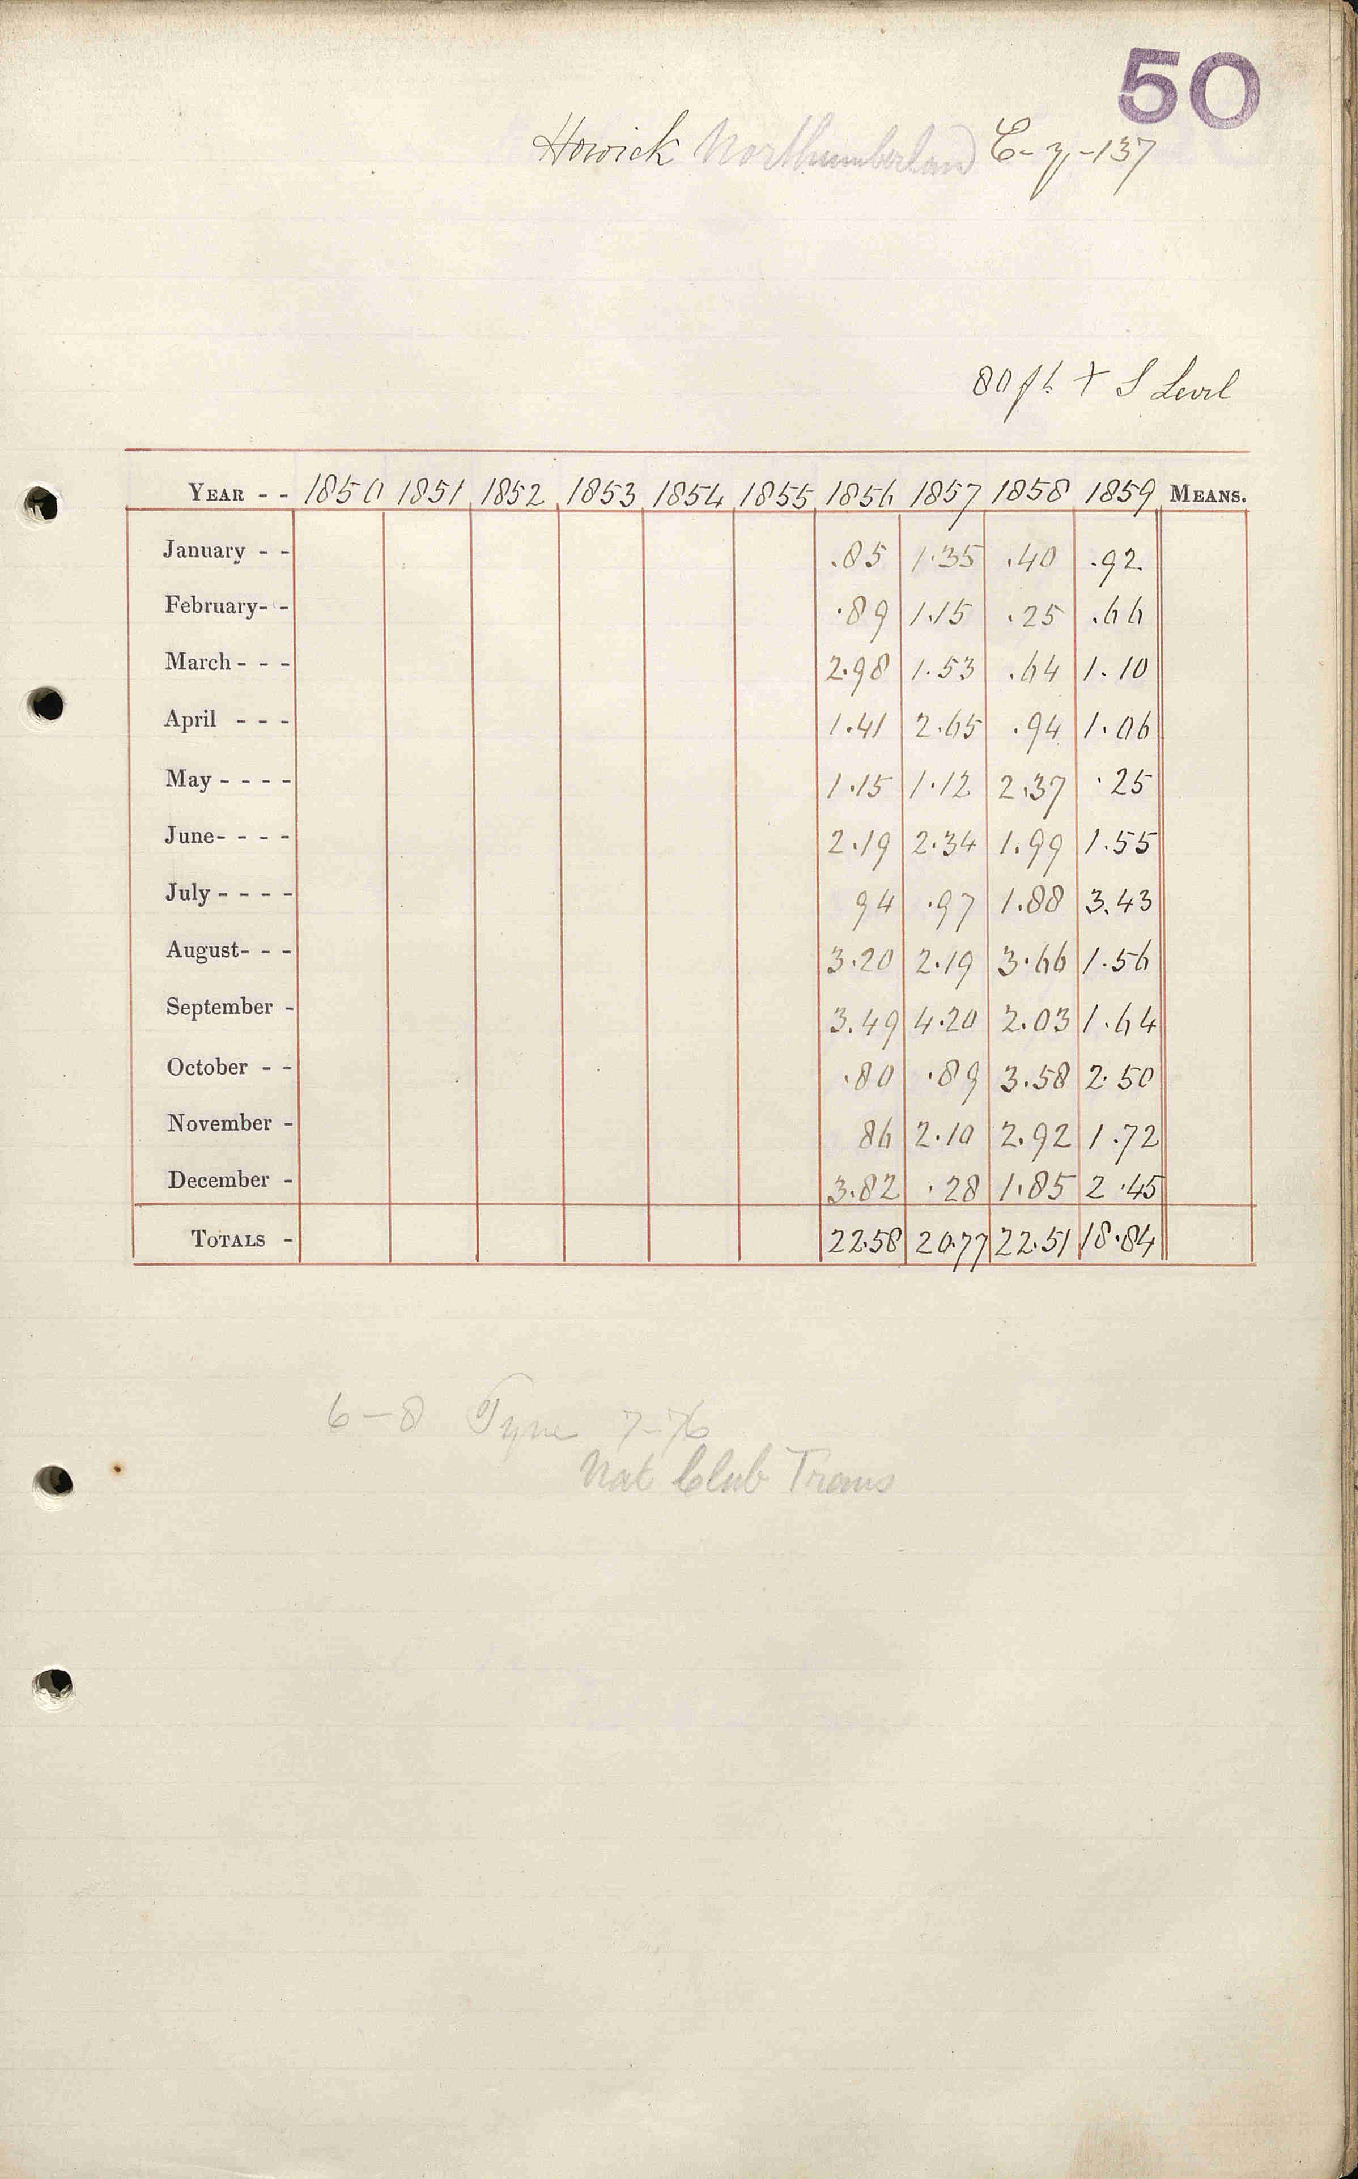 50
Howick Northumberland
80 ft + S Level
YEAR - - 1850 1851 1852 1853 1854 1855 1856 1857 1858 1859 MEANS.
January - - .85 1.35 .40 .92
February- - .89 1.15 .25 .66
March - - - 2.98 1.53 .64 1.10
April - - - 1.41 2.65 .94 1.06
May - - - - 1.15 1.12 2.37 .25
June- - - - 2.19 2.34 1.99 1.55
July - - - - 94 .97 1.88 3.43
August- - - 3.20 2.19 3.66 1.56
September - 3.49 4.20 2.03 1.64
October - - .80 .89 3.58 2.50
November - 86 2.10 2.92 1.72
December - 3.82 .28 1.85 2.45
TOTALS - 22.58 20.77 22.51 18.84
6-8 Tyne 7-76
Nat Club Trans